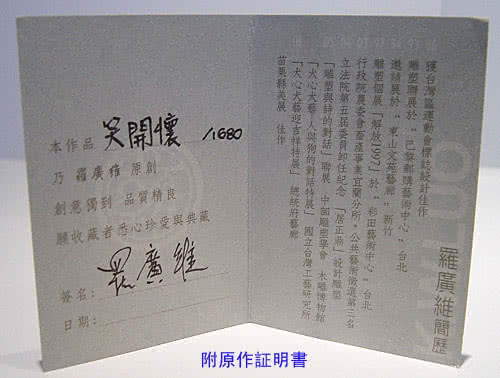 本作品 笑開懷 /1680
乃 羅廣維 原創
創意獨到 品質精良
願收藏者悉心珍愛與典藏
簽名: 羅廣維
日期:
羅廣維簡歷
獲台灣區運動會標誌設計佳作
雕塑聯展於〝巴黎新購藝術中心〞台北
邀請展於〝東山文苑藝廊〞新竹
雕塑個展『解放1997』於〝彩田藝術中心〞台北
行政院農委會畜產事業宜蘭分所,公共藝術徵選第二名
立法院第五屆委員卸任紀念「居正鼎」設計雕塑
「雕塑與詩的對話」聯展 中部雕塑學會 木雕博物館
「犬心犬藝人與狗的對話特展」國立台灣工藝研究所
「犬心犬藝迎吉祥特展」總統府藝廊
苗栗縣美展 佳作
附原作証明書